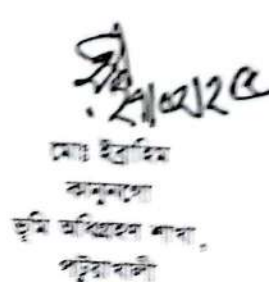 মোঃ ইব্রাহিম
কানুনগো
ভূমি অধিগ্রহণ শাখা,
পটুয়াখালী